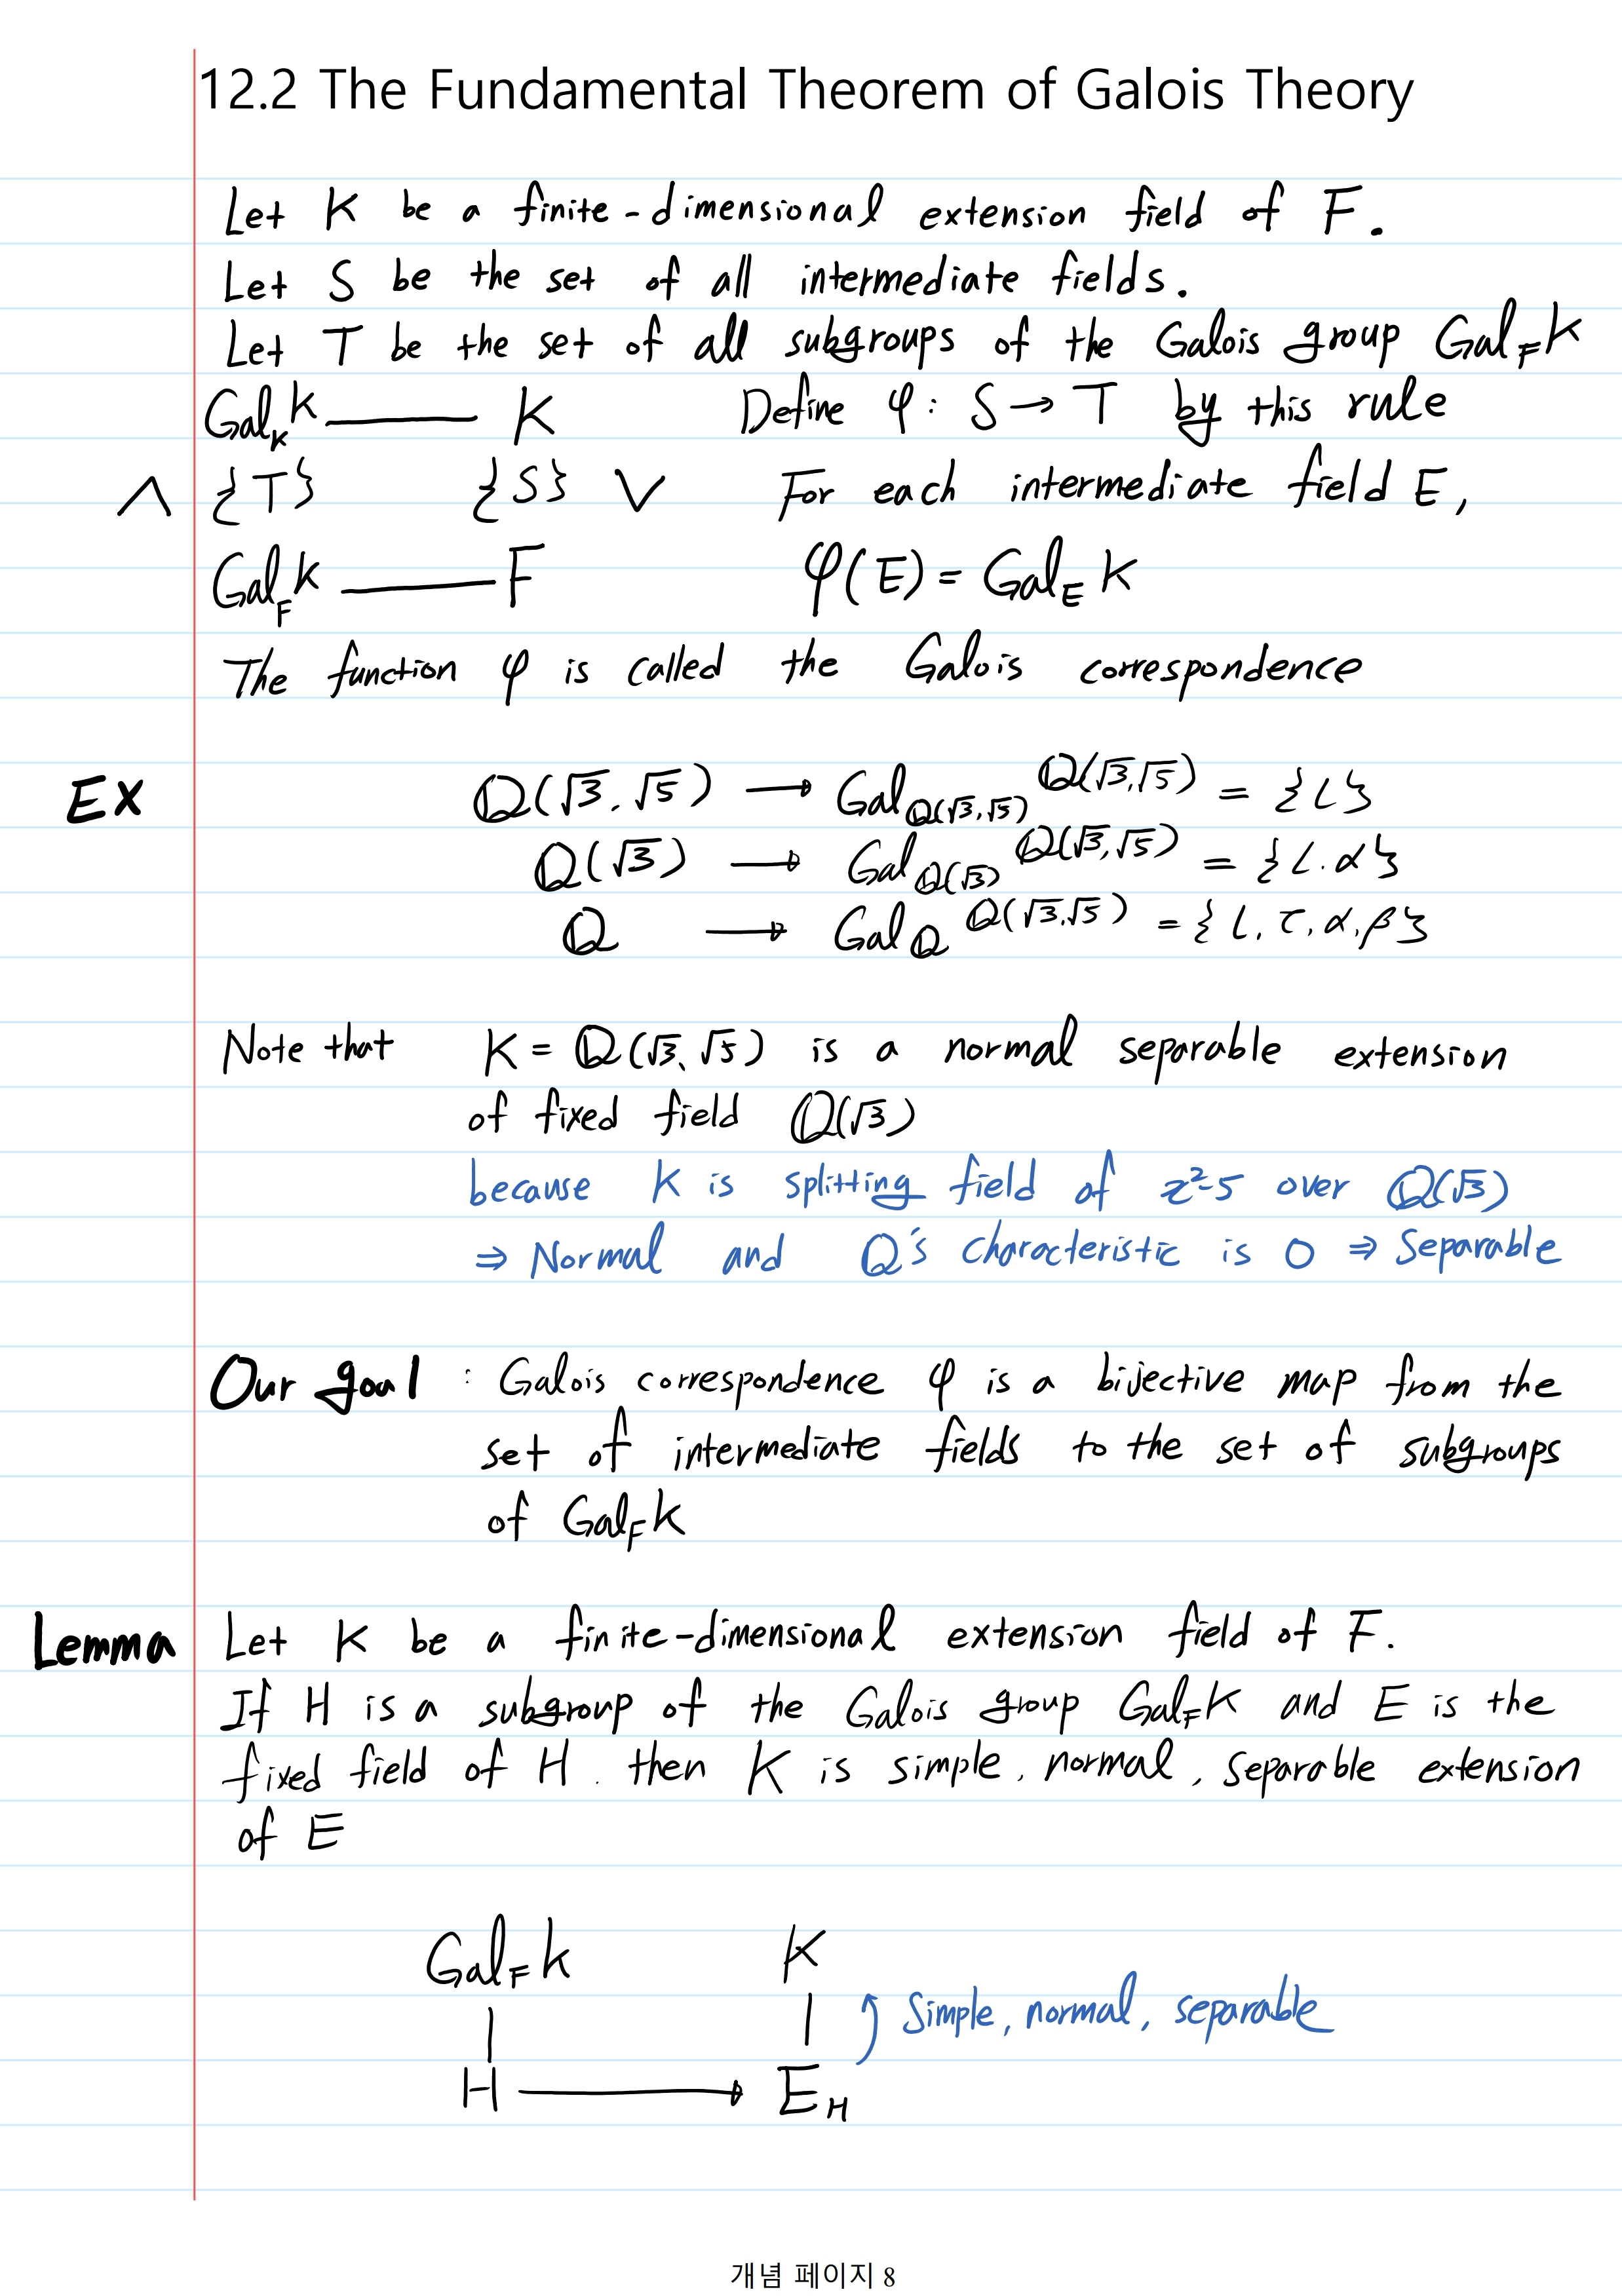 12.2 The Fundamental Theorem of Galois Theory
Let K be a finite-dimensional extension field of F.
Let S be the set of all intermediate fields.
Let T be the set of all subgroups of the Galois group Gal_F K
Gal_K K —— K Define φ: S → T by this rule
∧ {T} {S} ∨ For each intermediate field E,
Gal_F K —— F φ(E) = Gal_E K
The function φ is called the Galois correspondence
EX Q(√3, √5) → Gal_Q(√3,√5) Q(√3,√5) = {ι}
Q(√3) → Gal_Q(√3) Q(√3,√5) = {ι, α}
Q → Gal_Q Q(√3,√5) = {ι, τ, α, β}
Note that K = Q(√3, √5) is a normal separable extension
of fixed field Q(√3)
because K is splitting field of x²-5 over Q(√3)
⇒ Normal and Q's characteristic is 0 ⇒ Separable
Our goal : Galois correspondence φ is a bijective map from the
set of intermediate fields to the set of subgroups
of Gal_F K
Lemma Let K be a finite-dimensional extension field of F.
If H is a subgroup of the Galois group Gal_F K and E is the
fixed field of H. then K is simple, normal, separable extension
of E
Gal_F K K
| | Simple, normal, separable
H → E_H
개념 페이지 8